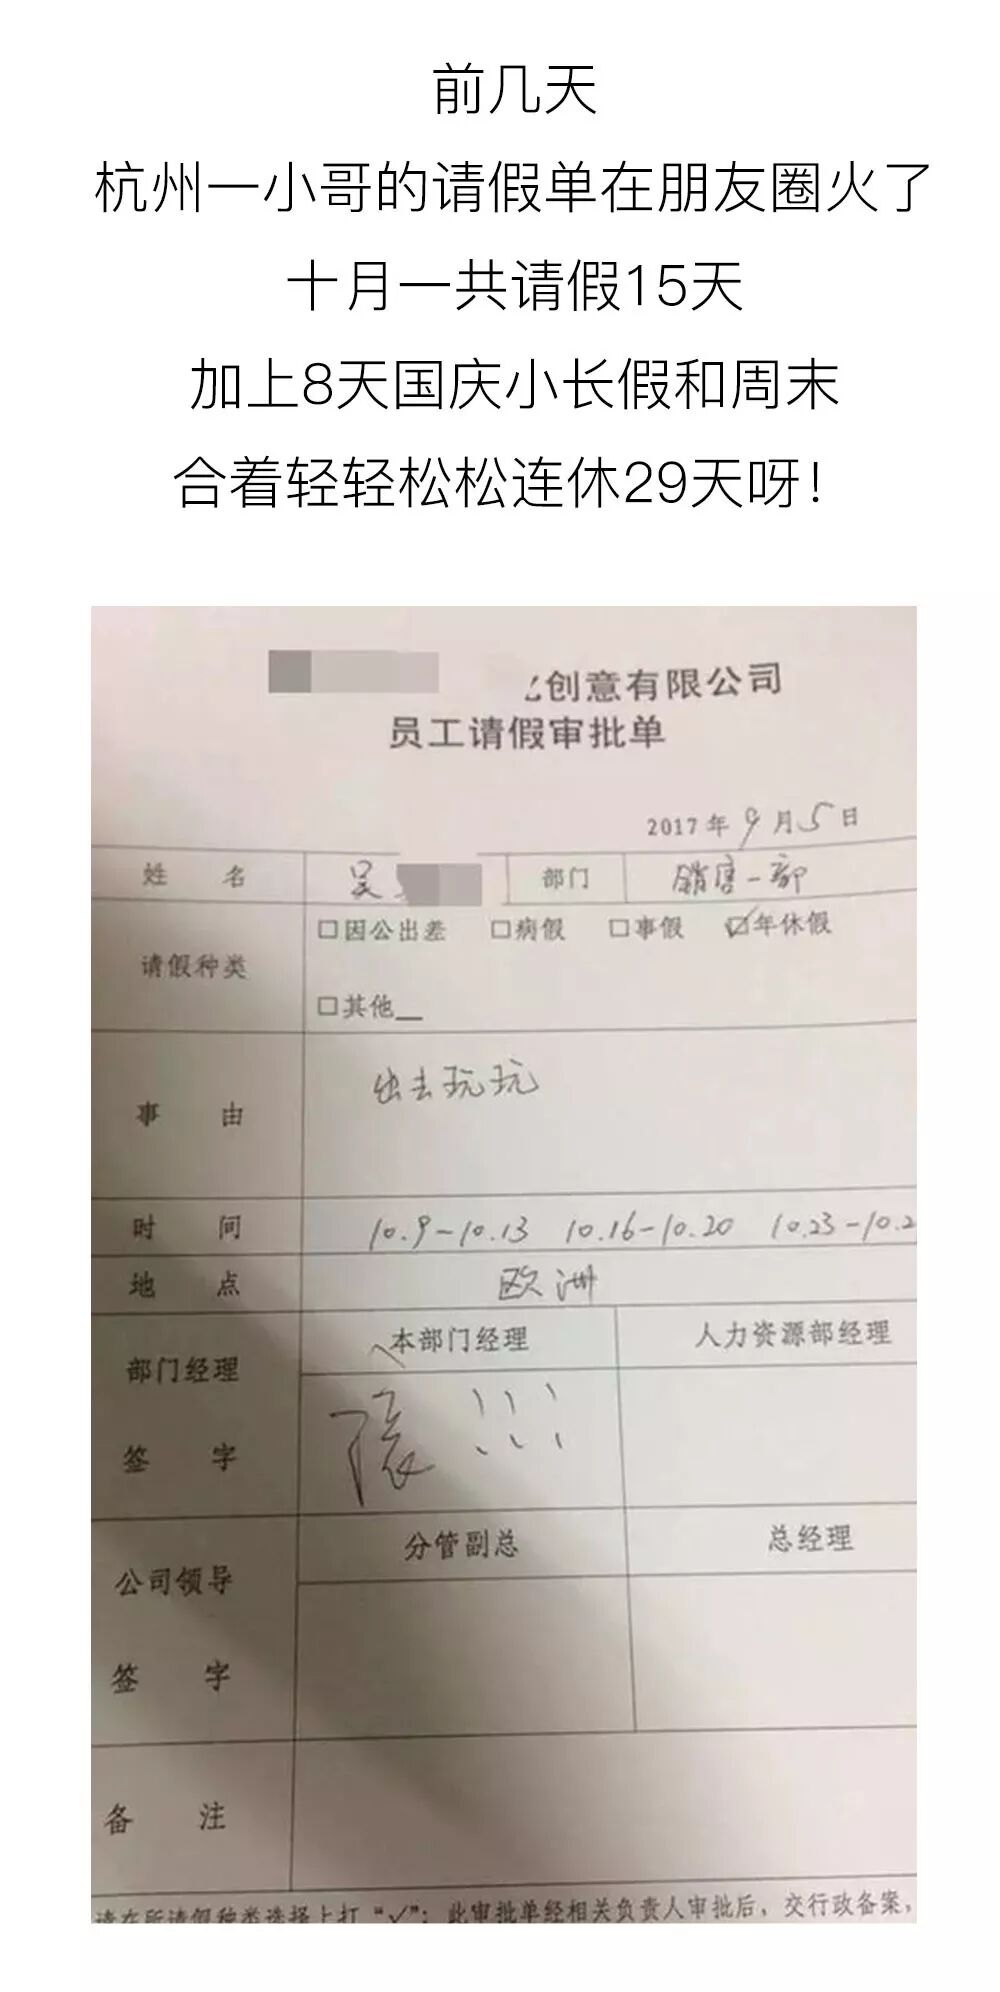 前几天
杭州一小哥的请假单在朋友圈火了
十月一共请假15天
加上8天国庆小长假和周末
合着轻轻松松连休29天呀！
创意有限公司
员工请假审批单
2017年9月5日
姓 名 吴 部门 销售一部
请假种类 □因公出差 □病假 □事假 ☑年休假
□其他__
事 由 出去玩玩
时 间 10.9-10.13 10.16-10.20 10.23-10.2
地 点 欧洲
部门经理 签 字 本部门经理 人力资源部经理
张 !!!
公司领导 签 字 分管副总 总经理
备 注
请在所请假种类选择上打“√”；此审批单经相关负责人审批后，交行政备案，